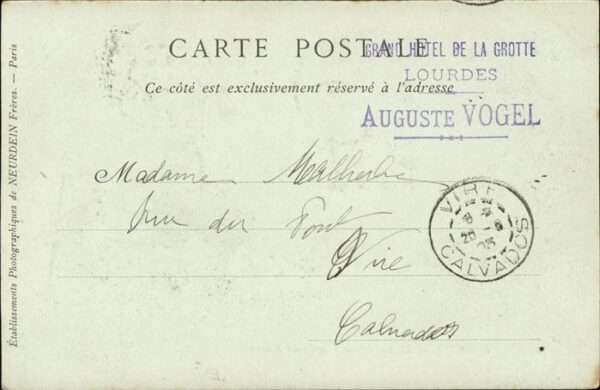 CARTE POSTALE
GRAND HOTEL DE LA GROTTE
LOURDES
Ce côté est exclusivement réservé à l'adresse
AUGUSTE VOGEL
Madame Malherbe
Rue du Pont
Vire
Calvados
VIRE
CALVADOS
Établissements Photographiques de NEURDEIN Frères. — Paris